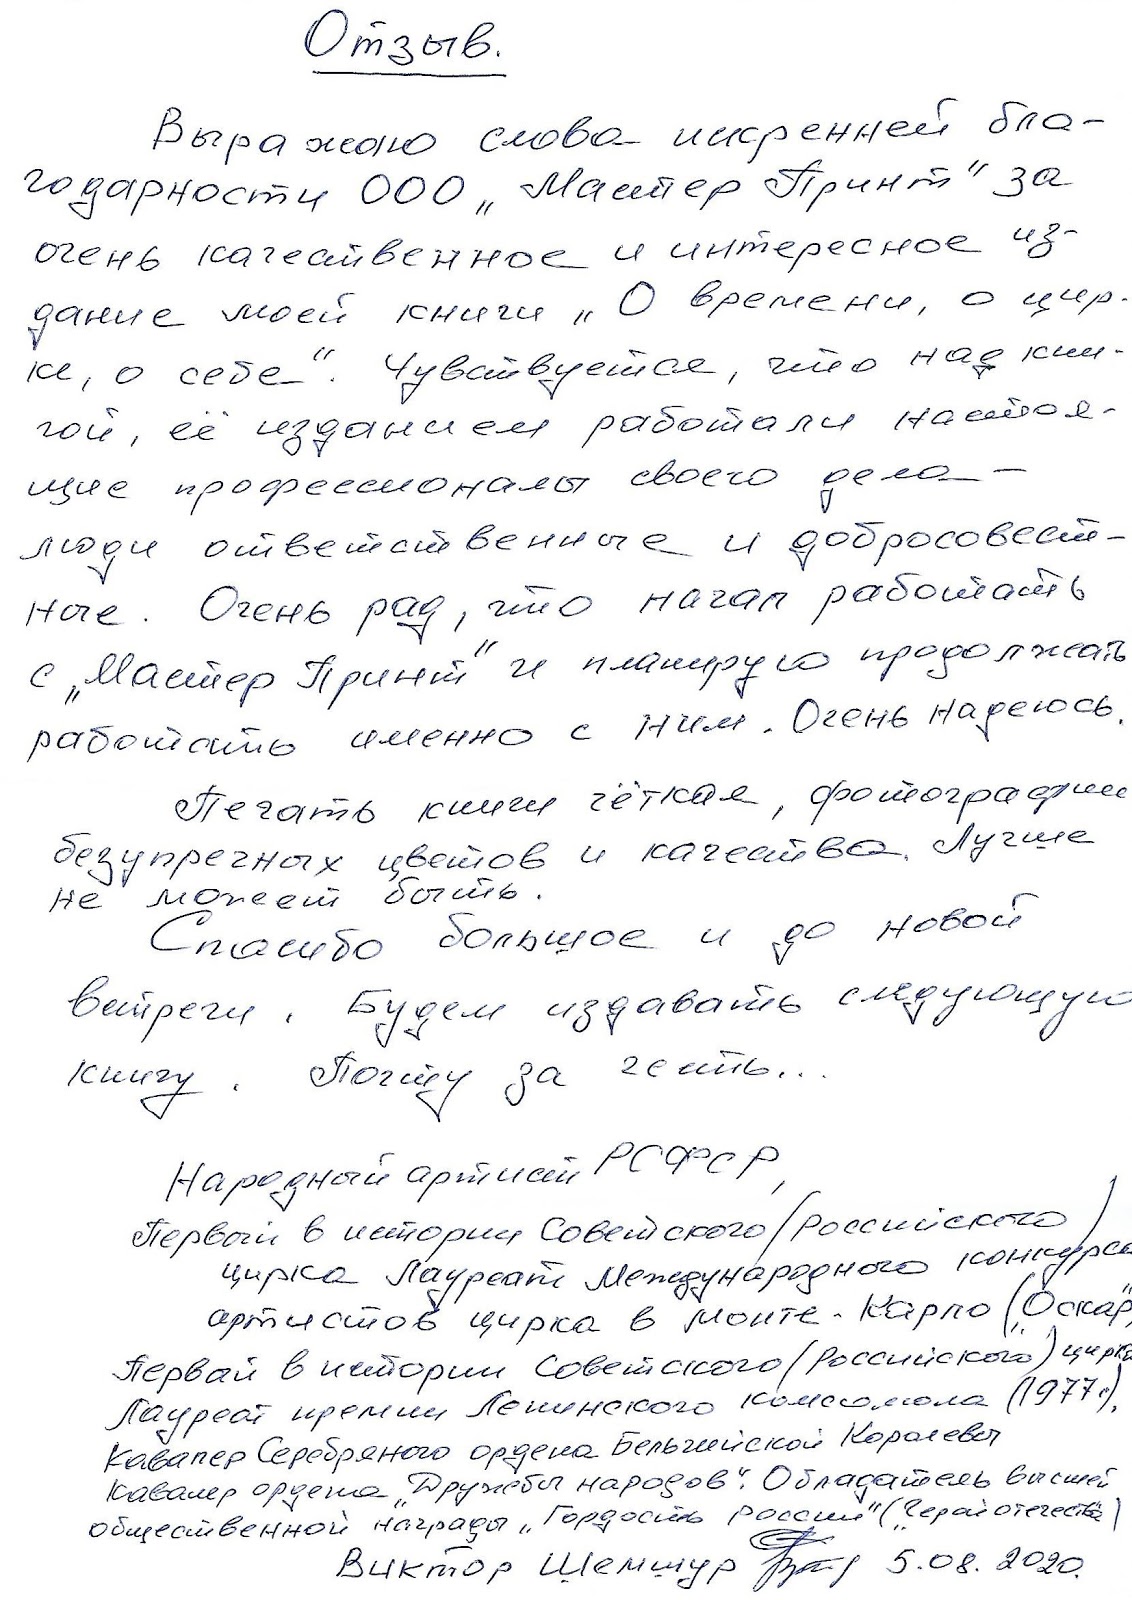 Отзыв.
Выражаю слова искренней бла-
годарности ООО „Мастер Принт“ за
очень качественное и интересное из-
дание моей книги „О времени, о цир-
ке, о себе“. Чувствуется, что над кни-
гой, её изданием работали настоя-
щие профессионалы своего дела —
люди ответственные и добросовест-
ные. Очень рад, что начал работать
с „Мастер Принт“ и планирую продолжать
работать именно с ним. Очень надеюсь.
Печать книги чёткая, фотографии
безупречных цветов и качества. Лучше
не может быть.
Спасибо большое и до новой
встречи. Будем издавать следующую
книгу. Почту за честь...
Народный артист РСФСР,
Первый в истории Советского (Российского)
цирка Лауреат Международного конкурса
артистов цирка в Монте-Карло („Оскар“)
Первый в истории Советского (Российского) цирка
Лауреат премии Ленинского комсомола (1977г).
Кавалер Серебряного ордена Бельгийской Королевы
Кавалер ордена „Дружбы народов“. Обладатель высшей
общественной награды „Гордость России“ („Герой отечества“)
Виктор Шемшур 5.08.2020.